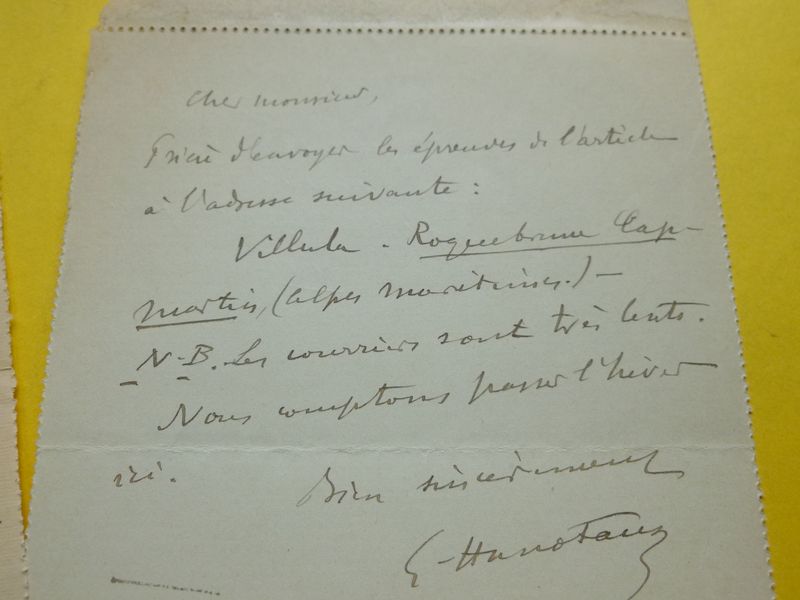 Cher monsieur,
Prière d'envoyer les épreuves de l'article
à l'adresse suivante :
Villula - Roquebrune Cap-
martin, (Alpes maritimes.) -
N-B. Les courriers sont très lents.
Nous comptons passer l'hiver
ici.
Bien sincèrement
G-Hanotaux